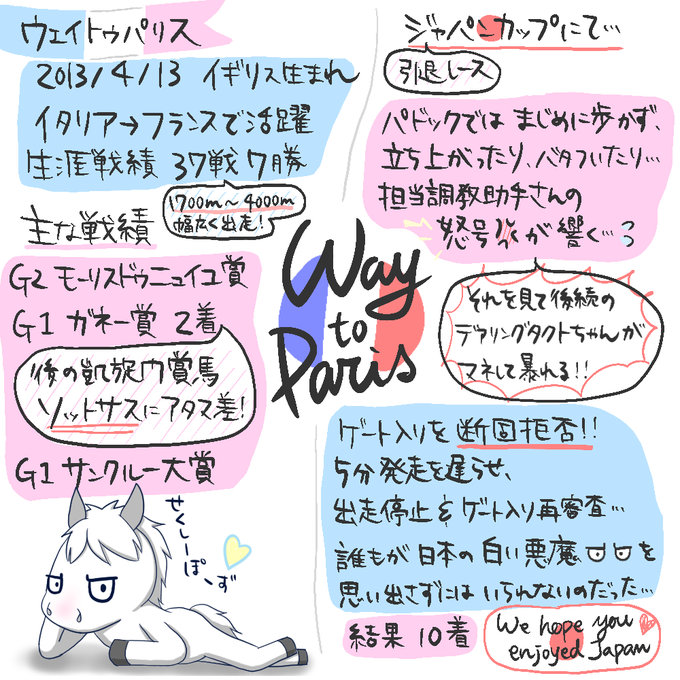 ウェイトゥパリス
2013/4/13 イギリス生まれ
イタリア→フランスで活躍
生涯戦績 37戦7勝
1700m～4000m
幅広く出走!
主な戦績
G2 モーリスドゥニュイユ賞
G1 ガネー賞 2着
後の凱旋門賞馬
ソットサスにアタマ差!
G1 サンクルー大賞
せくしーぽーず
Way
to
Paris
ジャパンカップにて…
引退レース
パドックではまじめに歩かず、
立ち上がったり、バタついたり…
担当調教助手さんの
怒号が響く…
それを見て後続の
デアリングタクトちゃんが
マネして暴れる!!
ゲート入りを断固拒否!!
5分発走を遅らせ、
出走停止&ゲート入り再審査…
誰もが日本の白い悪魔を
思い出さずにはいられないのだった…
結果 10着
We hope you
enjoyed Japan